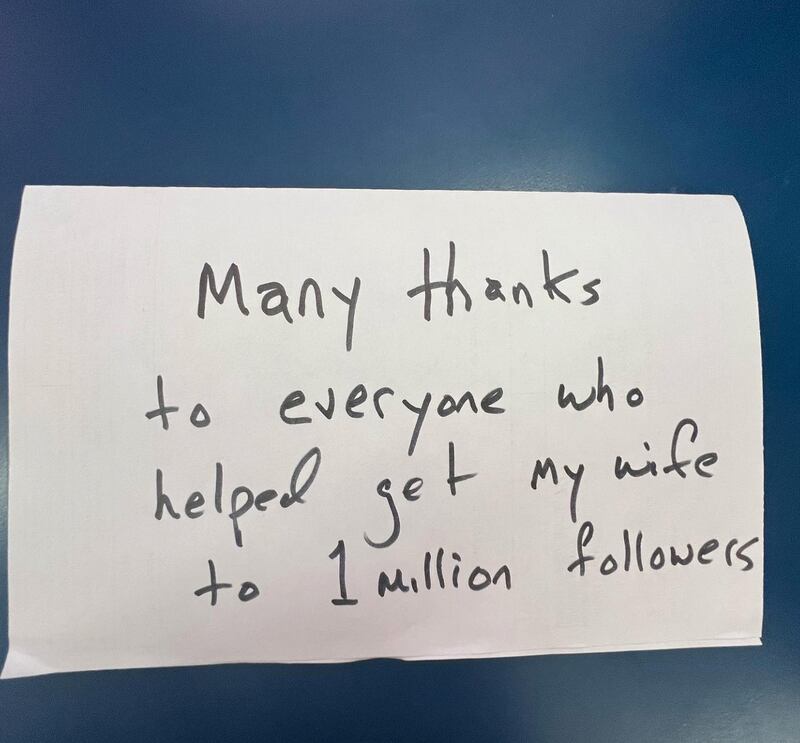 Many thanks
to everyone who
helped get my wife
to 1 million followers